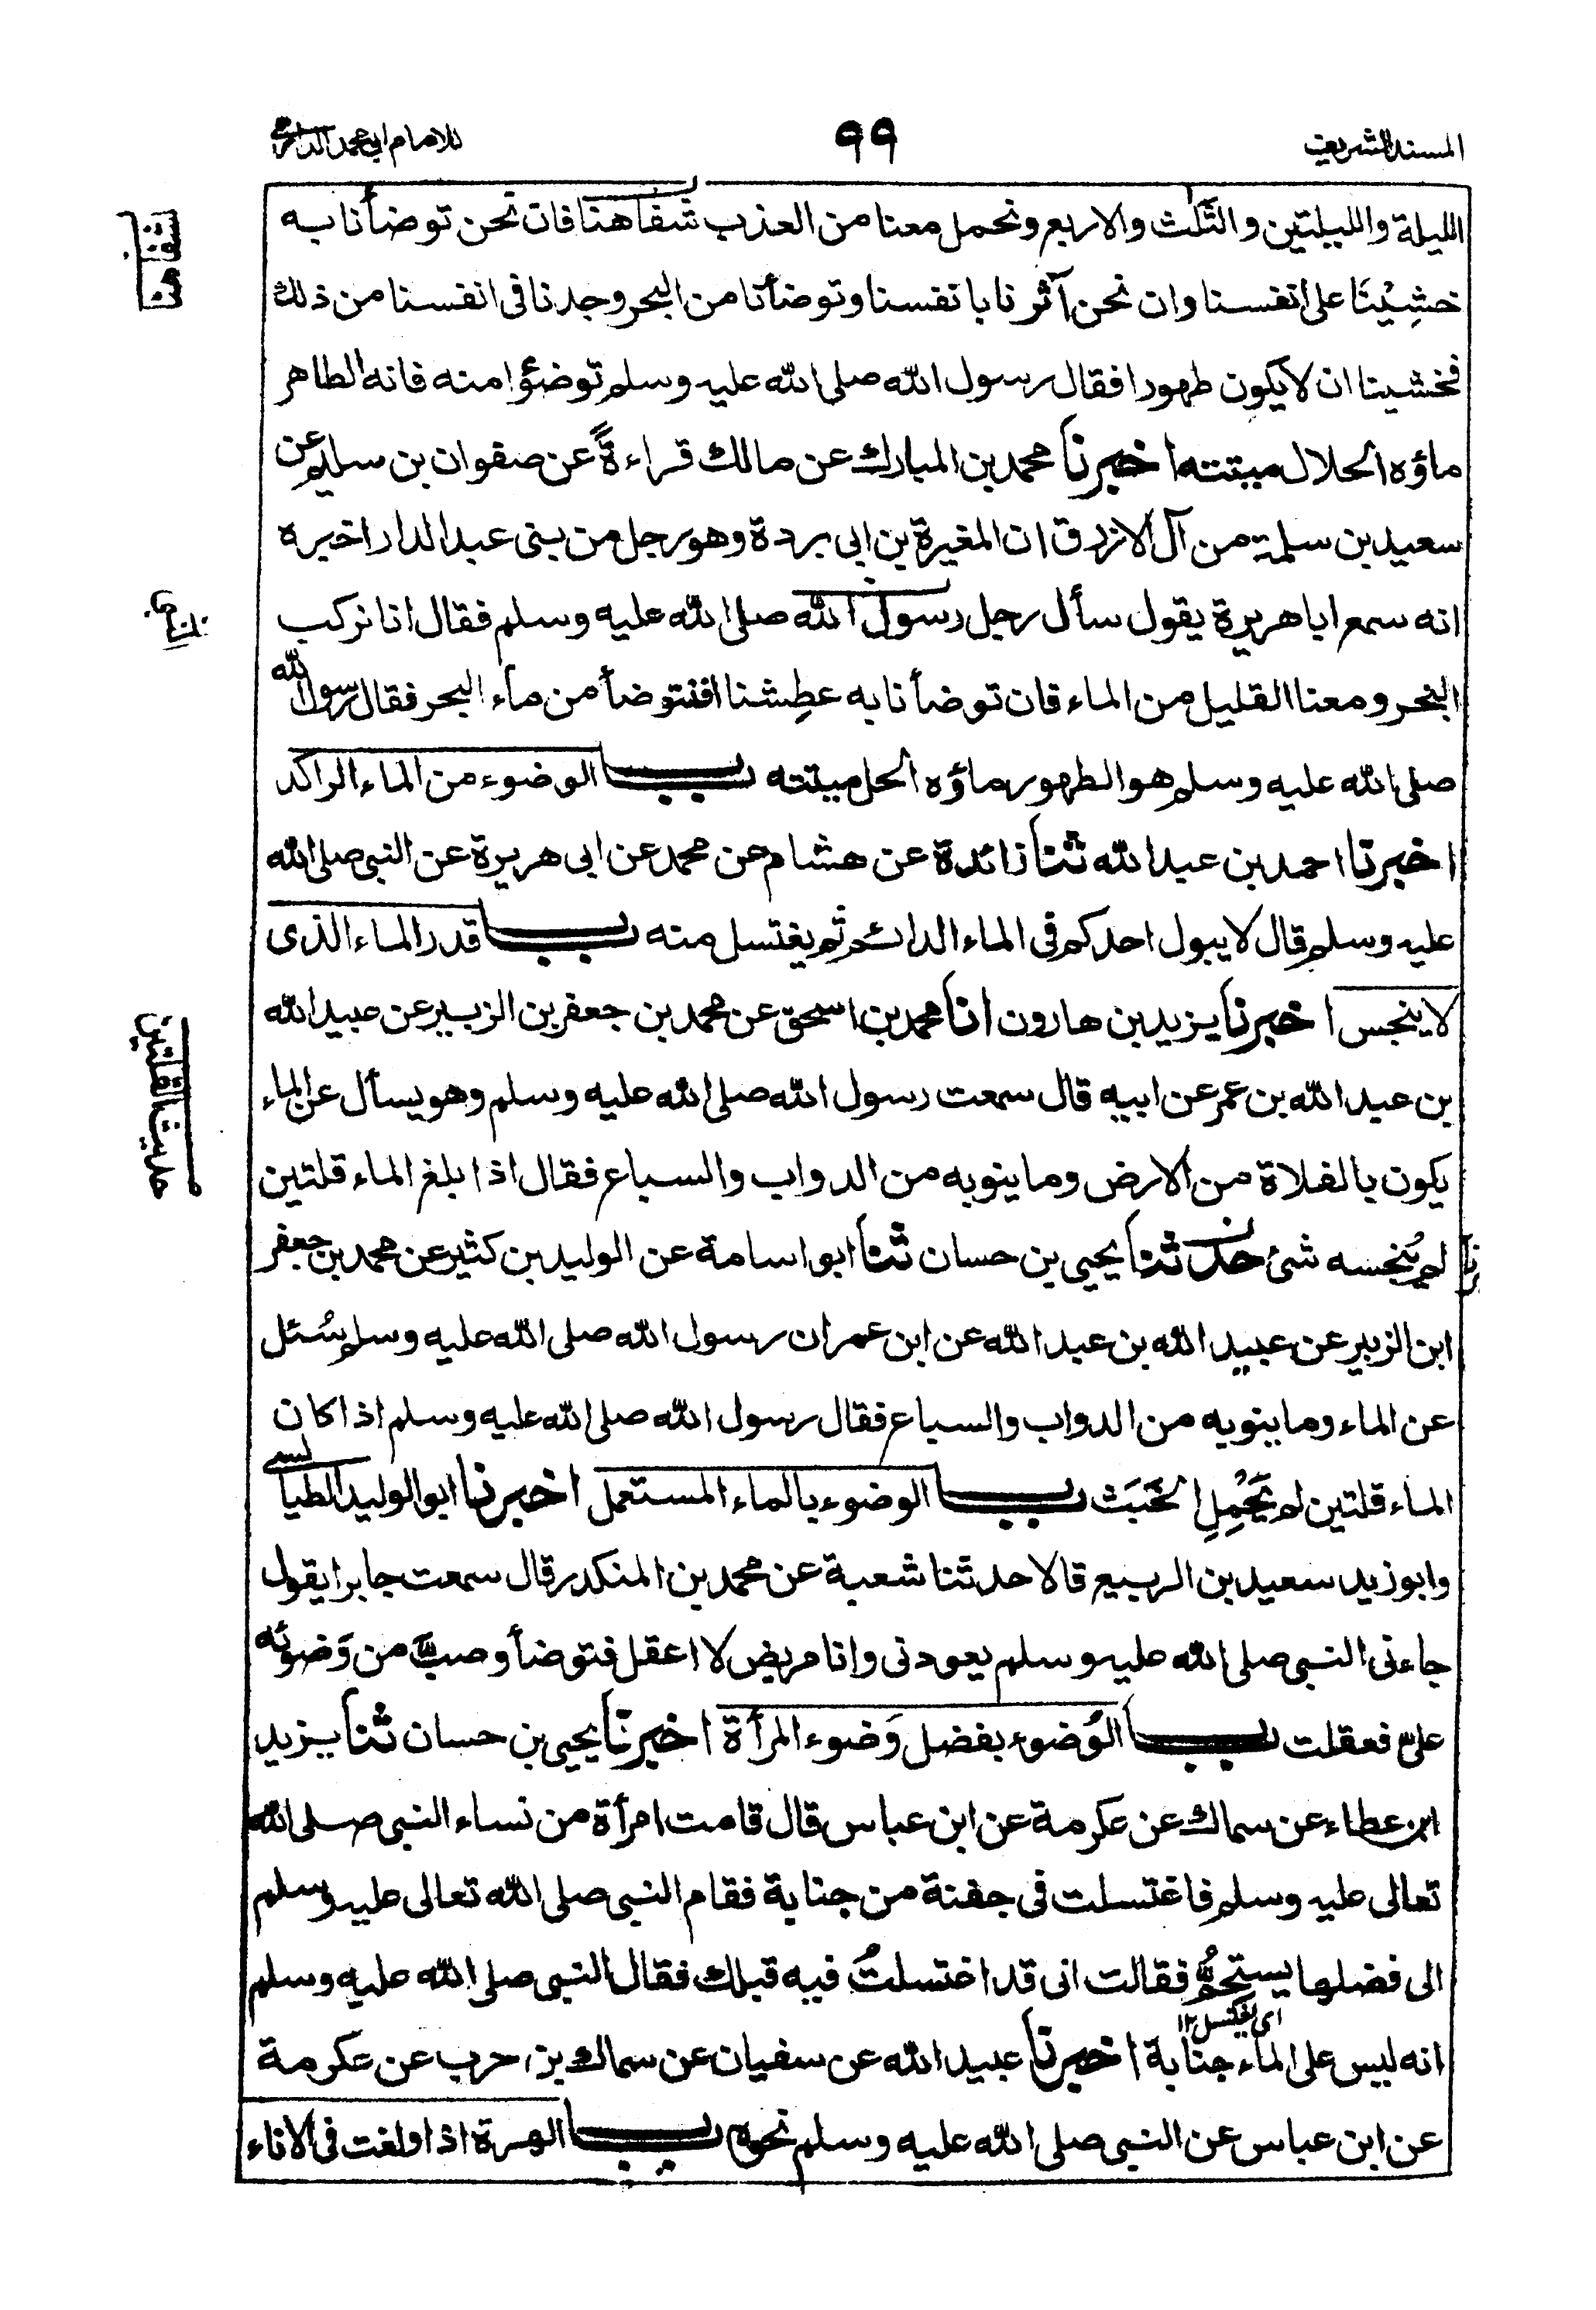 المسند الشريف
٩٩
للامام ابى محمد الدارمى
الليلة والليلتين والثَّلٰث والاربع ونحمل معنا من العذب شفاهنا فان نحن توضأنا به
خشِيْنَا على انفسنا وان نحن آثرنا بانفسنا وتوضأنا من البحر وجدنا فى انفسنا من ذلك
فخشينا ان لا يكون طهورا فقال رسول الله صلى الله عليه وسلم توضئوا منه فانه الطاهر
ماؤه الحلال ميتته اخبرنا محمد بن المبارك عن مالك قراءةً عن صفوان بن سليم عن
سعيد بن سلمة من آل الازرق ان المغيرة بن ابى بردة وهو رجل من بنى عبد الدار اخبره
انه سمع ابا هريرة يقول سأل رجل رسول الله صلى الله عليه وسلم فقال انا نركب
البحر ومعنا القليل من الماء فان توضأنا به عطِشنا افنتوضأ من ماء البحر فقال رسول الله
صلى الله عليه وسلم هو الطهور ماؤه الحل ميتته باب الوضوء من الماء الراكد
اخبرنا احمد بن عبد الله ثنا زائدة عن هشام عن محمد عن ابى هريرة عن النبى صلى الله
عليه وسلم قال لا يبول احدكم فى الماء الدائم ثم يغتسل منه باب قدر الماء الذى
لا ينجس اخبرنا يزيد بن هارون انا محمد بن اسحق عن محمد بن جعفر بن الزبير عن عبيد الله
بن عبد الله بن عمر عن ابيه قال سمعت رسول الله صلى الله عليه وسلم وهو يسأل عن الماء
يكون بالفلاة من الارض وما ينوبه من الدواب والسباع فقال اذا بلغ الماء قلتين
لم يُنجسه شئ حدثنا يحيى بن حسان ثنا ابو اسامة عن الوليد بن كثير عن محمد بن جعفر
ابن الزبير عن عبيد الله بن عبد الله عن ابن عمر ان رسول الله صلى الله عليه وسلم سُئل
عن الماء وما ينوبه من الدواب والسباع فقال رسول الله صلى الله عليه وسلم اذا كان
الماء قلتين لم يَحْمِلِ الخَبَث باب الوضوء بالماء المستعمل اخبرنا ابو الوليد الطيالسى
وابو زيد سعيد بن الربيع قالا حدثنا شعبة عن محمد بن المنكدر قال سمعت جابرا يقول
جاءنى النبى صلى الله عليه وسلم يعودنى وانا مريض لا اعقل فتوضأ وصبَّ من وَضوئه
علىّ فعقلت باب الوُضوء بفضل وَضوء المرأة اخبرنا يحيى بن حسان ثنا يزيد
ابن عطاء عن سماك عن عكرمة عن ابن عباس قال قامت امرأة من نساء النبى صلى الله
تعالى عليه وسلم فاغتسلت فى جفنة من جنابة فقام النبى صلى الله تعالى عليه وسلم
الى فضلها يستحمُّ فقالت انى قد اغتسلتُ فيه قبلك فقال النبى صلى الله عليه وسلم
اى يغتسل ١٢
انه ليس على الماء جنابة اخبرنا عبيد الله عن سفيان عن سماك بن حرب عن عكرمة
عن ابن عباس عن النبى صلى الله عليه وسلم نحوه باب الهرة اذا ولغت فى الاناء
حديث القلتين